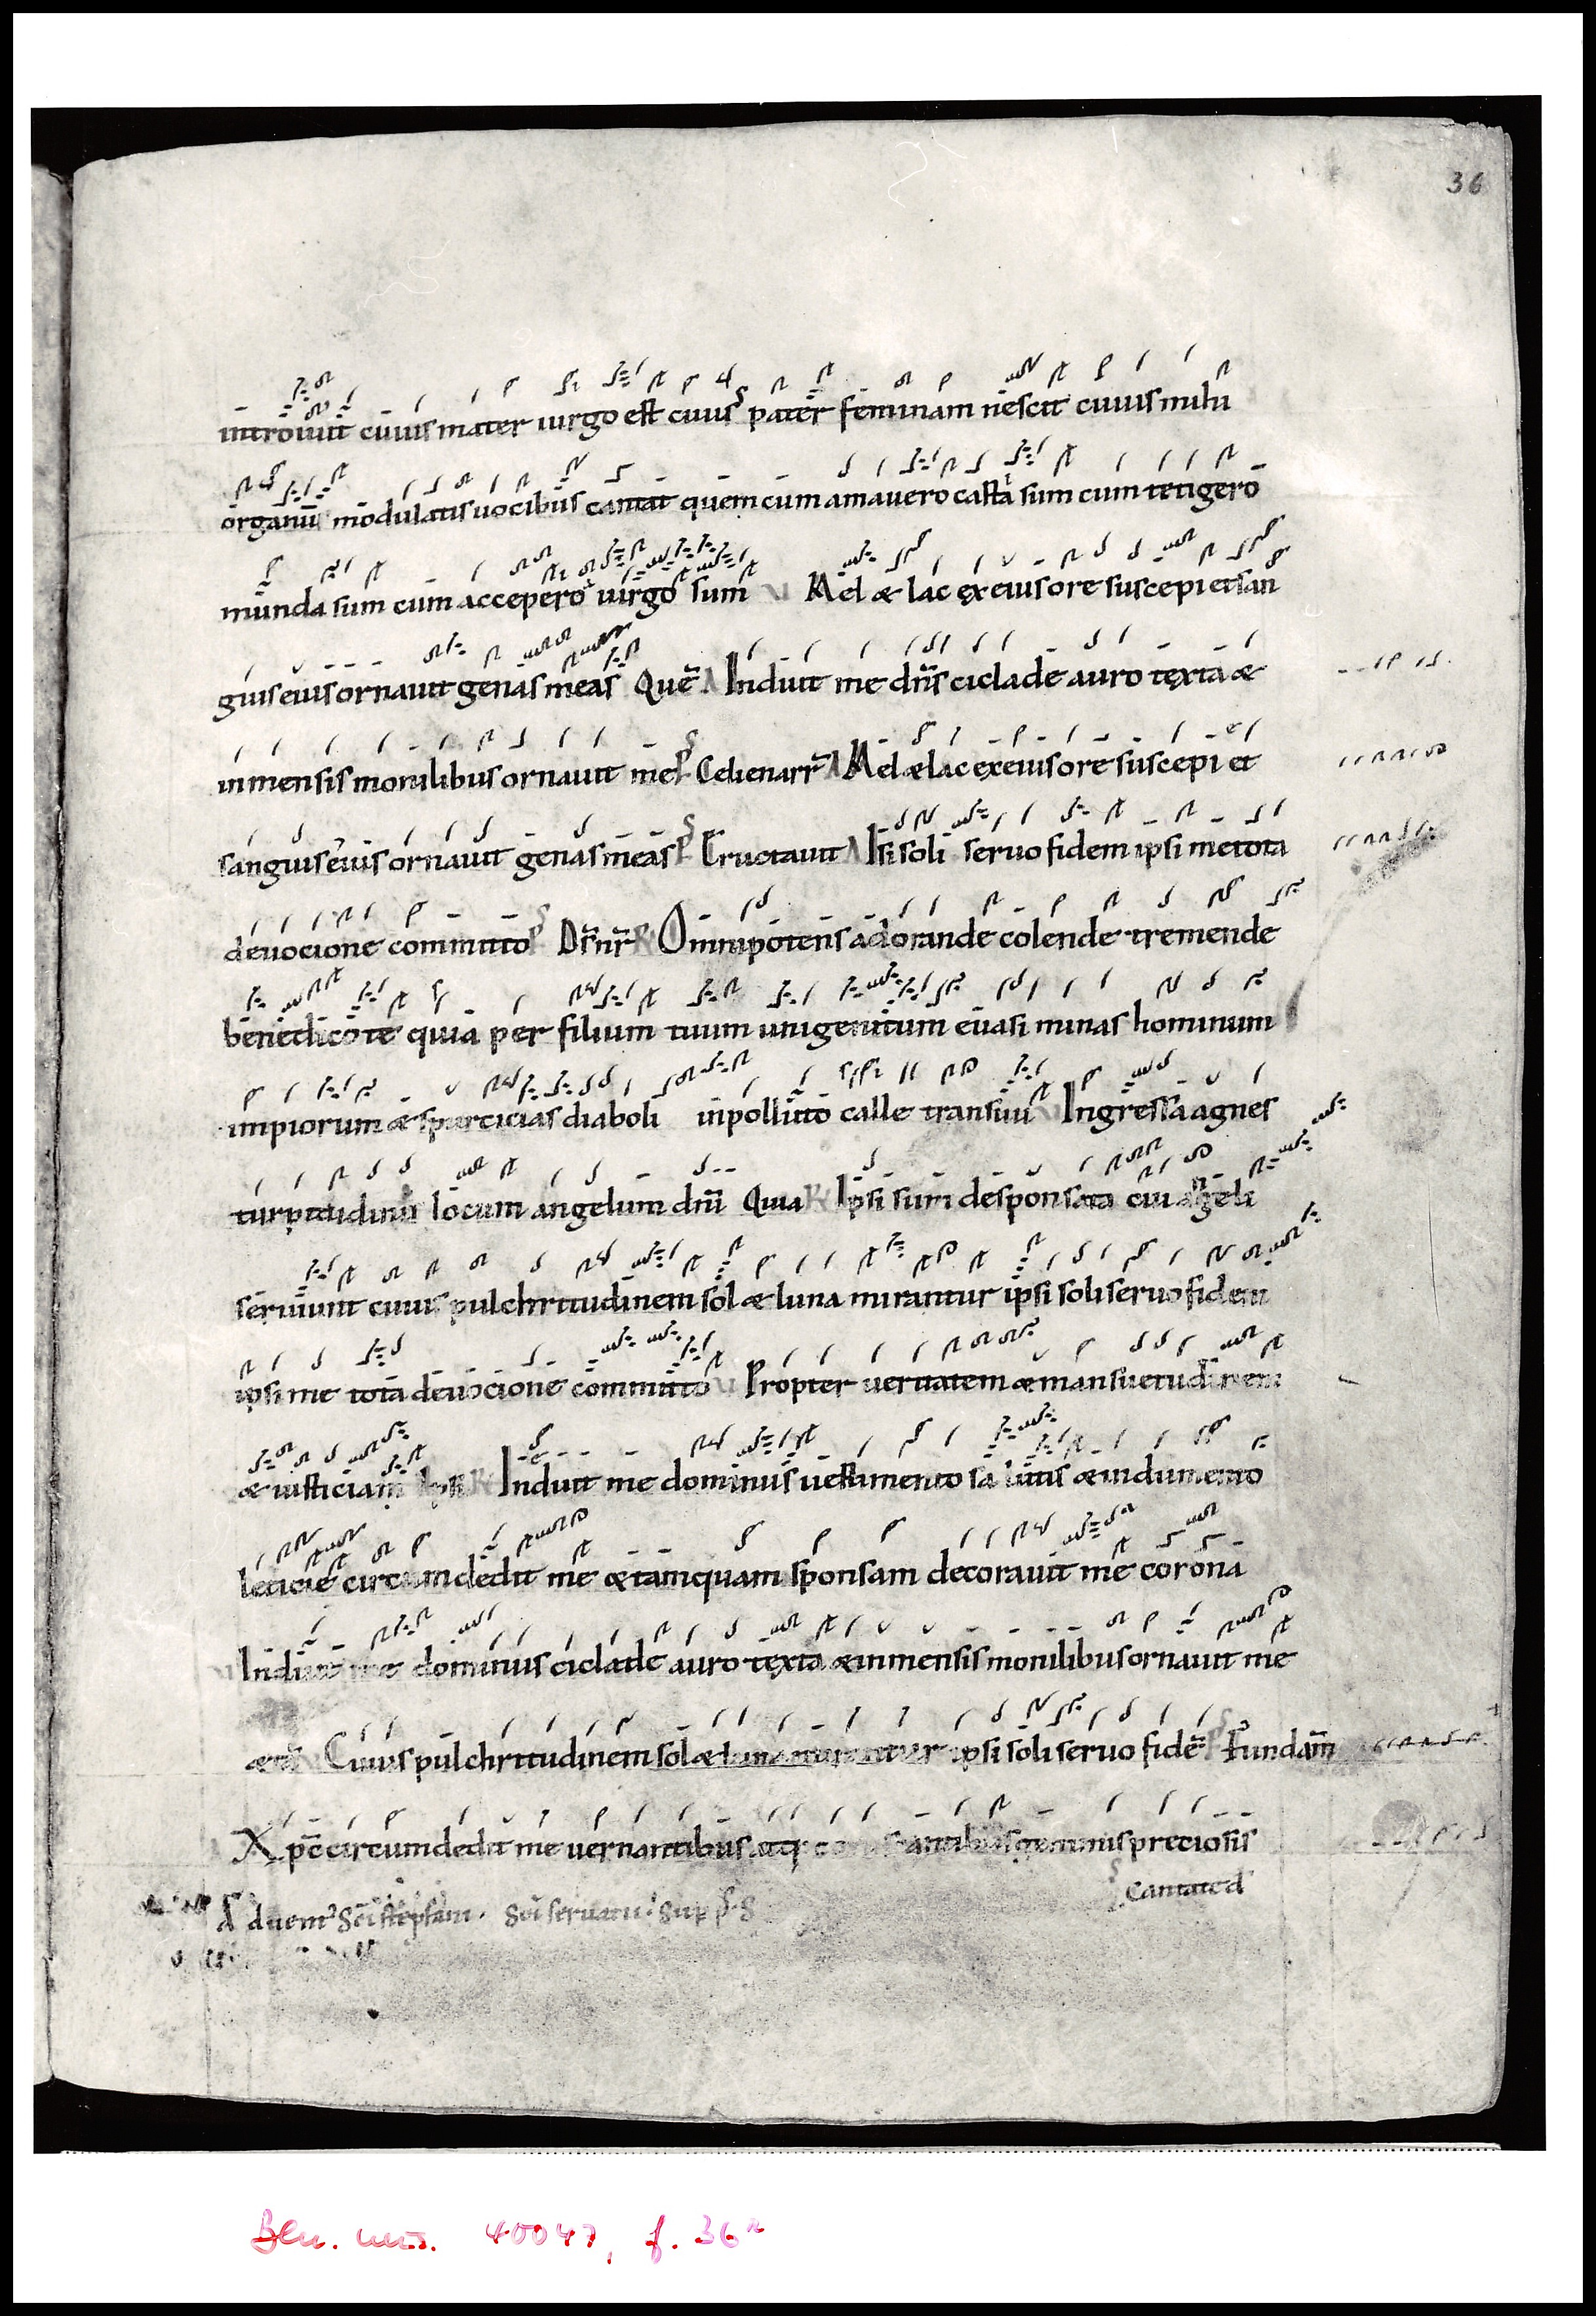 36
introiuit cuius mater uirgo est cuius pater feminam nescit cuius mihi
organū modulatis uocibus cantat quem cum amauero casta sum cum tetigero
munda sum cum accepero uirgo sum V Mel & lac ex eius ore suscepi et san
guis eius ornauit genas meas Quē A Induit me dn̄s ciclade auro texta &
inmensis monilibus ornauit me P Celi enarr̄ A Mel & lac ex eius ore suscepi et
sanguis eius ornauit genas meas P Eructauit A Ipsi soli seruo fidem ipsi me tota
deuocione committo P Dn̄i r̄ R Omnipotens adorande colende tremende
benedico te quia per filium tuum unigenitum euasi minas hominum
impiorum & spurcicias diaboli inpolluto calle transiui V Ingressa agnes
turpitudinis locum angelum dn̄i Quia R Ipsi sum desponsata cui angeli
seruiunt cuius pulchritudinem sol & luna mirantur ipsi soli seruo fidem
ipsi me tota deuocione committo V Propter ueritatem & mansuetudinem
& iusticiam Ipsi R Induit me dominus uestimento salutis & indumento
leticie circumdedit me & tamquam sponsam decorauit me corona
V Induit me dominus ciclade auro texta & inmensis monilibus ornauit me
Cuius pulchritudinem sol & luna mirantur ipsi soli seruo fidē P Fundam̄
A Xp̄c circumdedit me uernantibus atq; coruscantibus gemmis preciosis
P Cantate d
Ben. ms. 40047, f. 36r